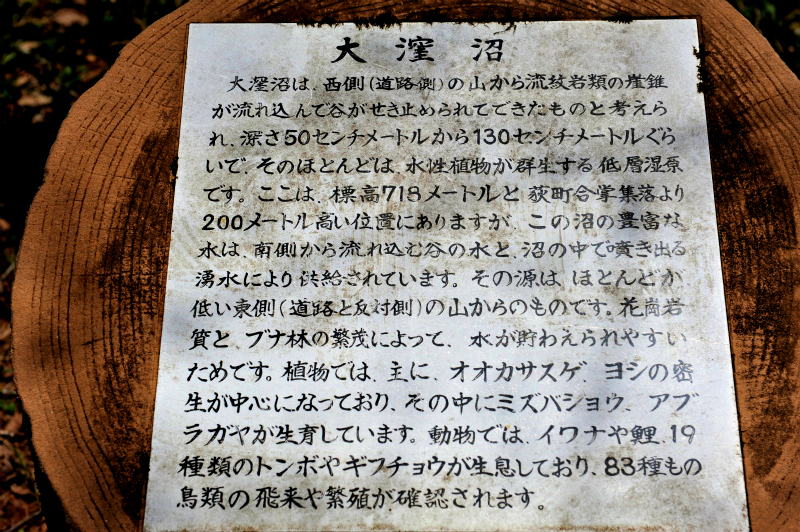 大窪沼
大窪沼は、西側(道路側)の山から流紋岩類の崖錐
が流れ込んで谷がせき止められてできたものと考えら
れ、深さ50センチメートルから130センチメートルぐら
いで、そのほとんどは、水性植物が群生する低層湿原
です。ここは、標高718メートルと荻町合掌集落より
200メートル高い位置にありますが、この沼の豊富な
水は、南側から流れ込む谷の水と、沼の中で噴き出る
湧水により供給されています。その源は、ほとんどが
低い東側(道路と反対側)の山からのものです。花崗岩
質と、ブナ林の繁茂によって、水が貯わえられやすい
ためです。植物では、主に、オオカサスゲ、ヨシの密
生が中心になっており、その中にミズバショウ、アブ
ラガヤが生育しています。動物では、イワナや鯉、19
種類のトンボやギフチョウが生息しており、83種もの
鳥類の飛来や繁殖が確認されます。